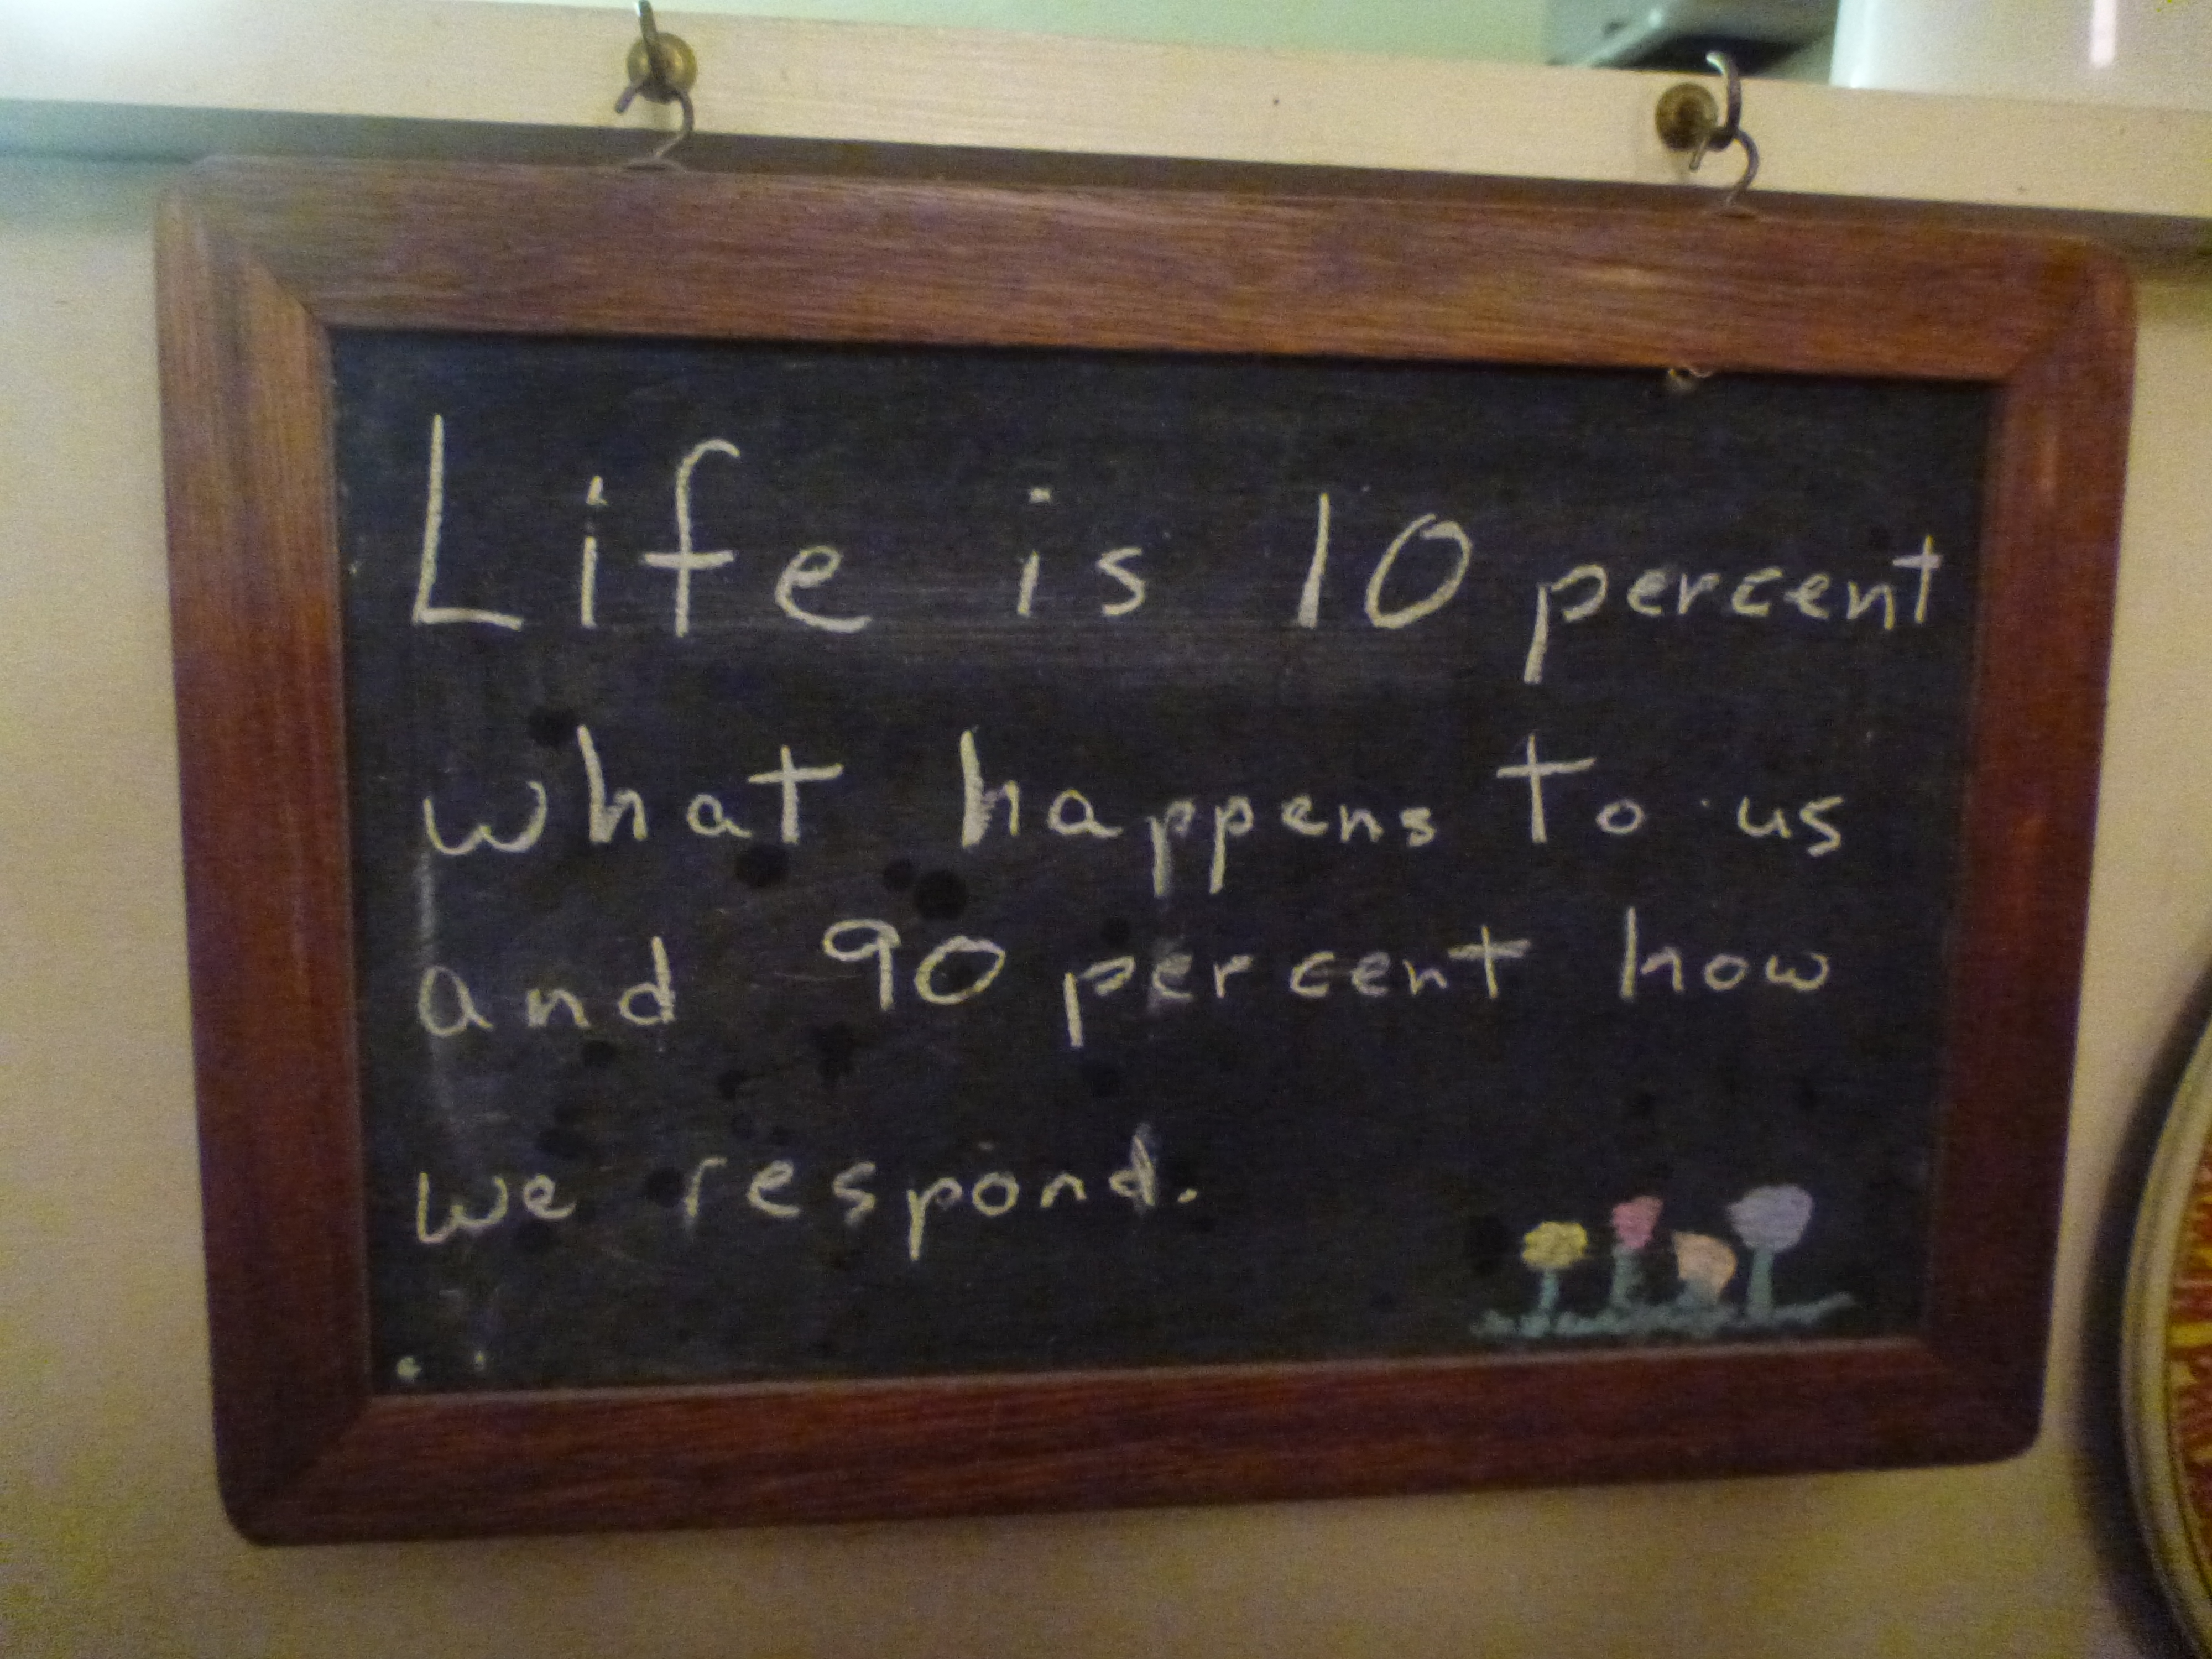 Life is 10 percent
what happens to us
and 90 percent how
we respond.